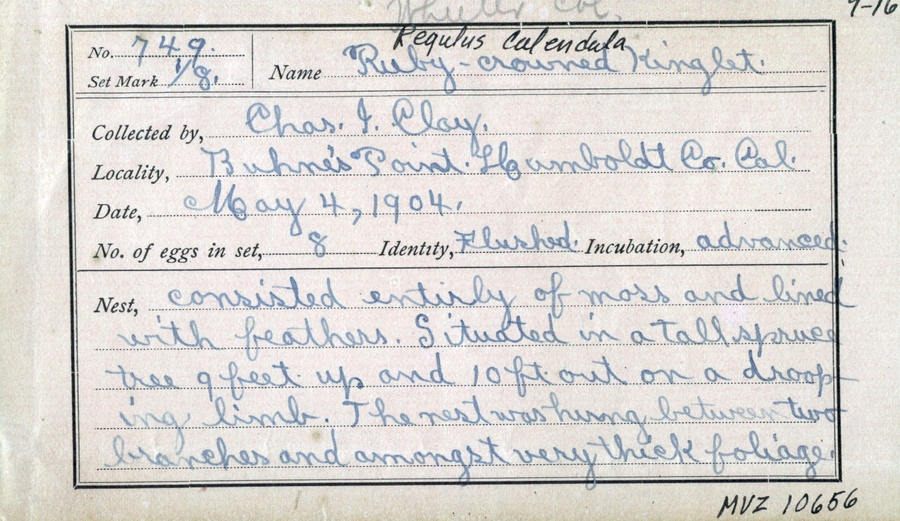 Wheeler Col.
9-16
Regulus calendula
No. 749.
Name Ruby-crowned Kinglet.
Set Mark 1/8.
Collected by, Chas. I. Clay.
Locality, Buhne's Point. Humboldt Co. Cal.
Date, May 4, 1904.
No. of eggs in set, 8 Identity, Flushed. Incubation, advanced.
Nest, consisted entirly of moss and lined
with feathers. Situated in a tall spruce
tree 9 feet up and 10 ft out on a droop-
ing limb. The nest was hung between two
branches and amongst very thick foliage.
MVZ 10656